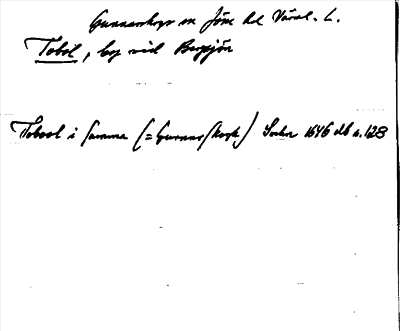 Gunnarskogs sn Jösse hd Värml. L.
Tobol, by vid Bergsjön
Tobool i samma (= Gunnarskogh) Sochn 1646 db s. 128